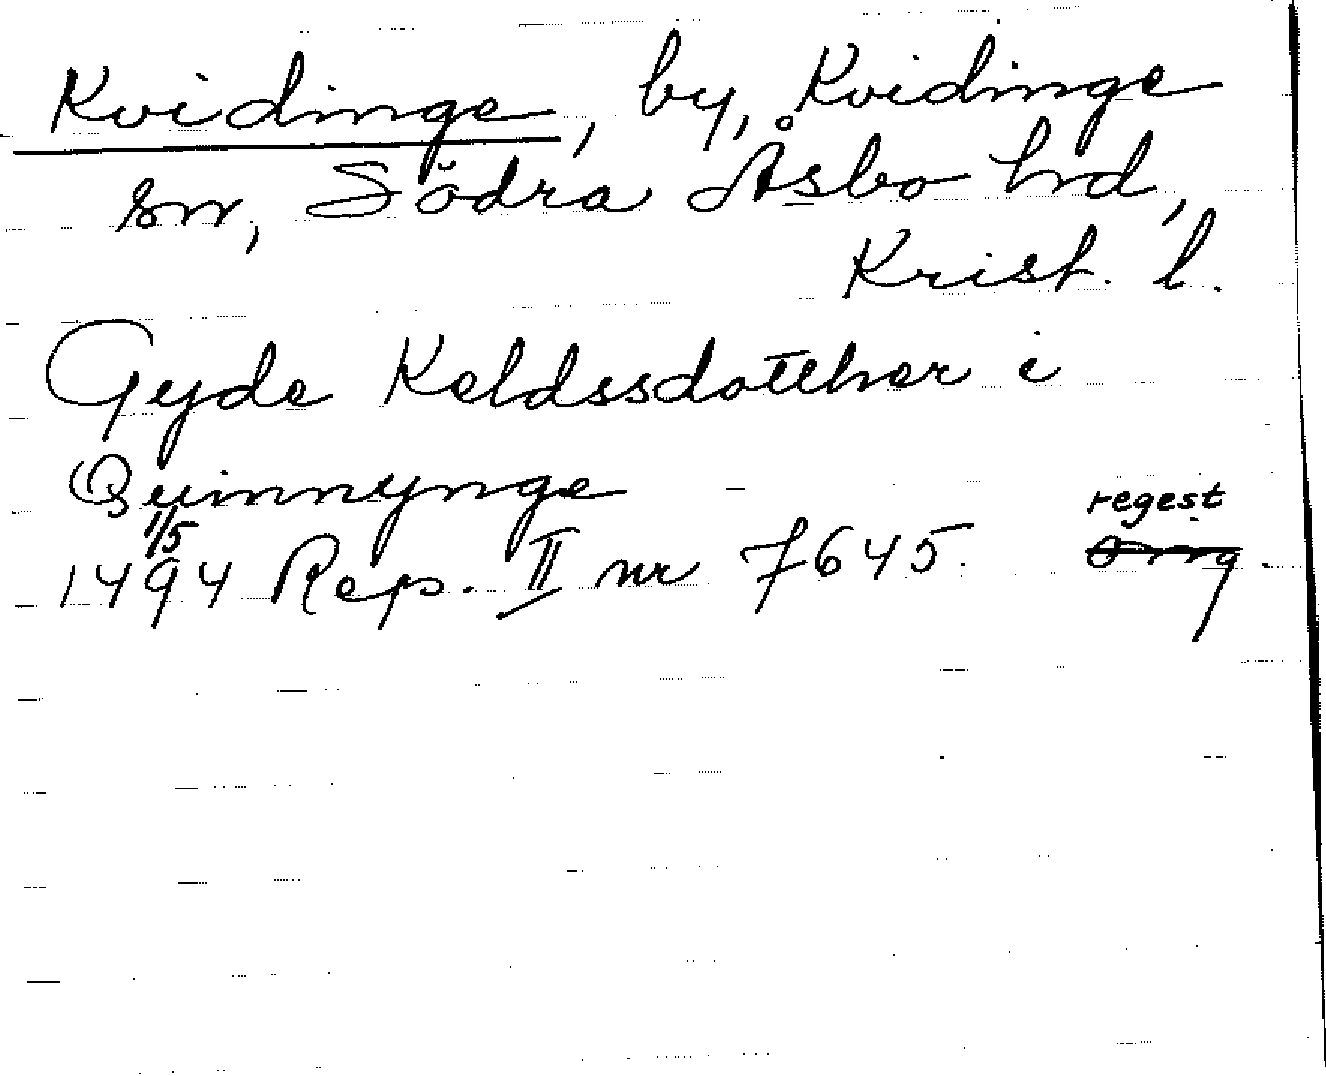 Kvidinge, by, Kvidinge
sn, Södra Åsbo hd,
Krist. l.
Gyde Keldssdotther i
Quinnynge
1/5 regest
1494 Rep. II nr 7645. Orig.